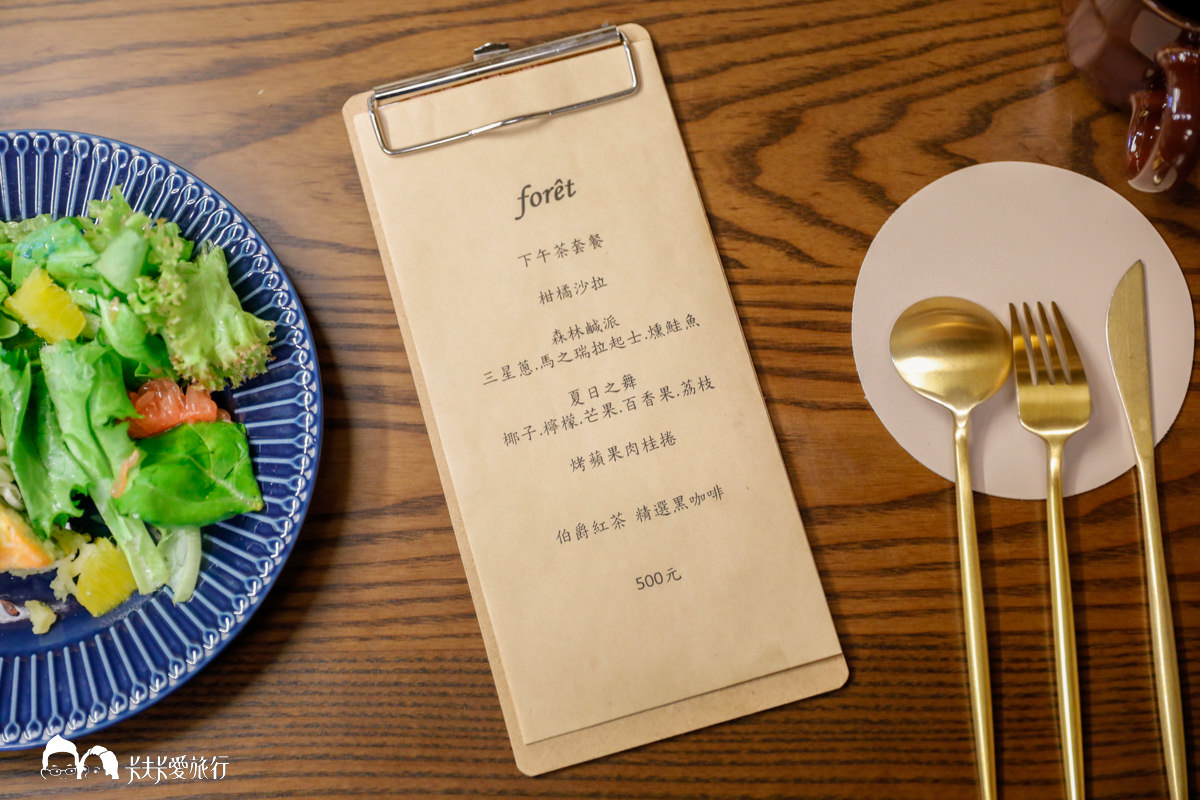 forêt
下午茶套餐
柑橘沙拉
森林鹹派
三星蔥.馬之瑞拉起士.燻鮭魚
夏日之舞
椰子.檸檬.芒果.百香果.荔枝
烤蘋果肉桂捲
伯爵紅茶 精選黑咖啡
500元
卡夫卡愛旅行